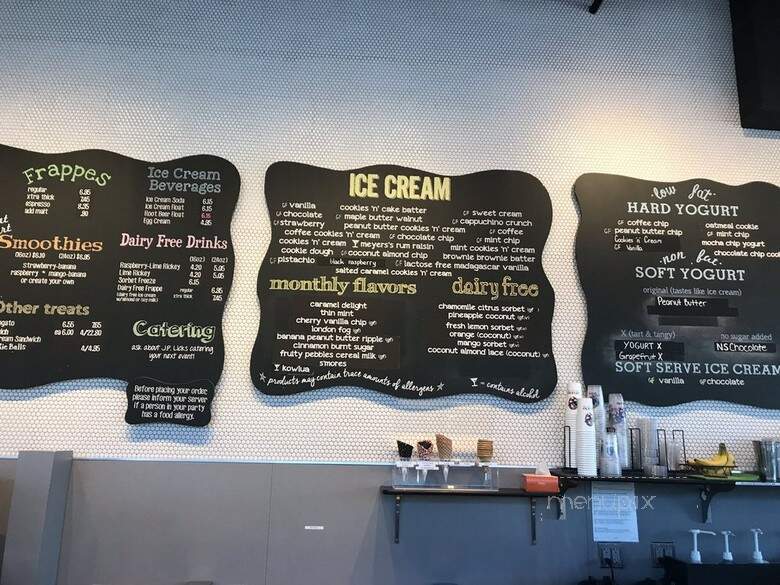 Frappes
regular 6.85
xtra thick 7.45
espresso 8.35
add malt .90
Ice Cream
Beverages
Ice Cream Soda 6.15
Ice Cream Float 6.15
Root Beer Float 6.15
Egg Cream 4.85
Smoothies
(16oz) (24oz)
strawberry-banana
raspberry + mango-banana
or create your own
Dairy Free Drinks
(16oz) (24oz)
Raspberry-Lime Rickey 4.20 5.05
Lime Rickey 4.20 5.05
Sorbet Freeze 6.15
Dairy Free Frappe regular 6.85
xtra thick
Other treats
6.55 7.65
ea 6.00 4/22.80
Sandwich
Bells 4/4.85
Catering
ask about J.P. Licks catering
your next event!
Before placing your order,
please inform your server
if a person in your party
has a food allergy.
ICE CREAM
GF vanilla
GF chocolate
GF strawberry
cookies 'n' cake batter
GF maple butter walnut
peanut butter cookies 'n' cream
coffee cookies 'n' cream
GF chocolate chip
cookies 'n' cream
meyers's rum raisin
cookie dough
GF coconut almond chip
GF pistachio
black raspberry
GF lactose free madagascar vanilla
salted caramel cookies 'n' cream
GF sweet cream
GF cappuccino crunch
GF coffee
GF mint chip
mint cookies 'n' cream
brownie brownie batter
monthly flavors
caramel delight
thin mint
cherry vanilla chip GF
london fog GF
banana peanut butter ripple GF
cinnamon burnt sugar
fruity pebbles cereal milk GF
s'mores
kowlua
dairy free
chamomile citrus sorbet
pineapple coconut
fresh lemon sorbet
orange (coconut)
mango sorbet
coconut almond lace (coconut)
products may contain trace amounts of allergens
= contains alcohol
low fat
HARD YOGURT
GF coffee chip
GF peanut butter chip
Cookies 'n' Cream
GF Vanilla
oatmeal cookie
GF mint chip
mocha chip yogurt
chocolate chip
non fat
SOFT YOGURT
original (tastes like ice cream)
Peanut butter
X (tart & tangy)
YOGURT X
Grapefruit X
no sugar added
NS Chocolate
SOFT SERVE ICE CREAM
GF vanilla GF chocolate
menupix